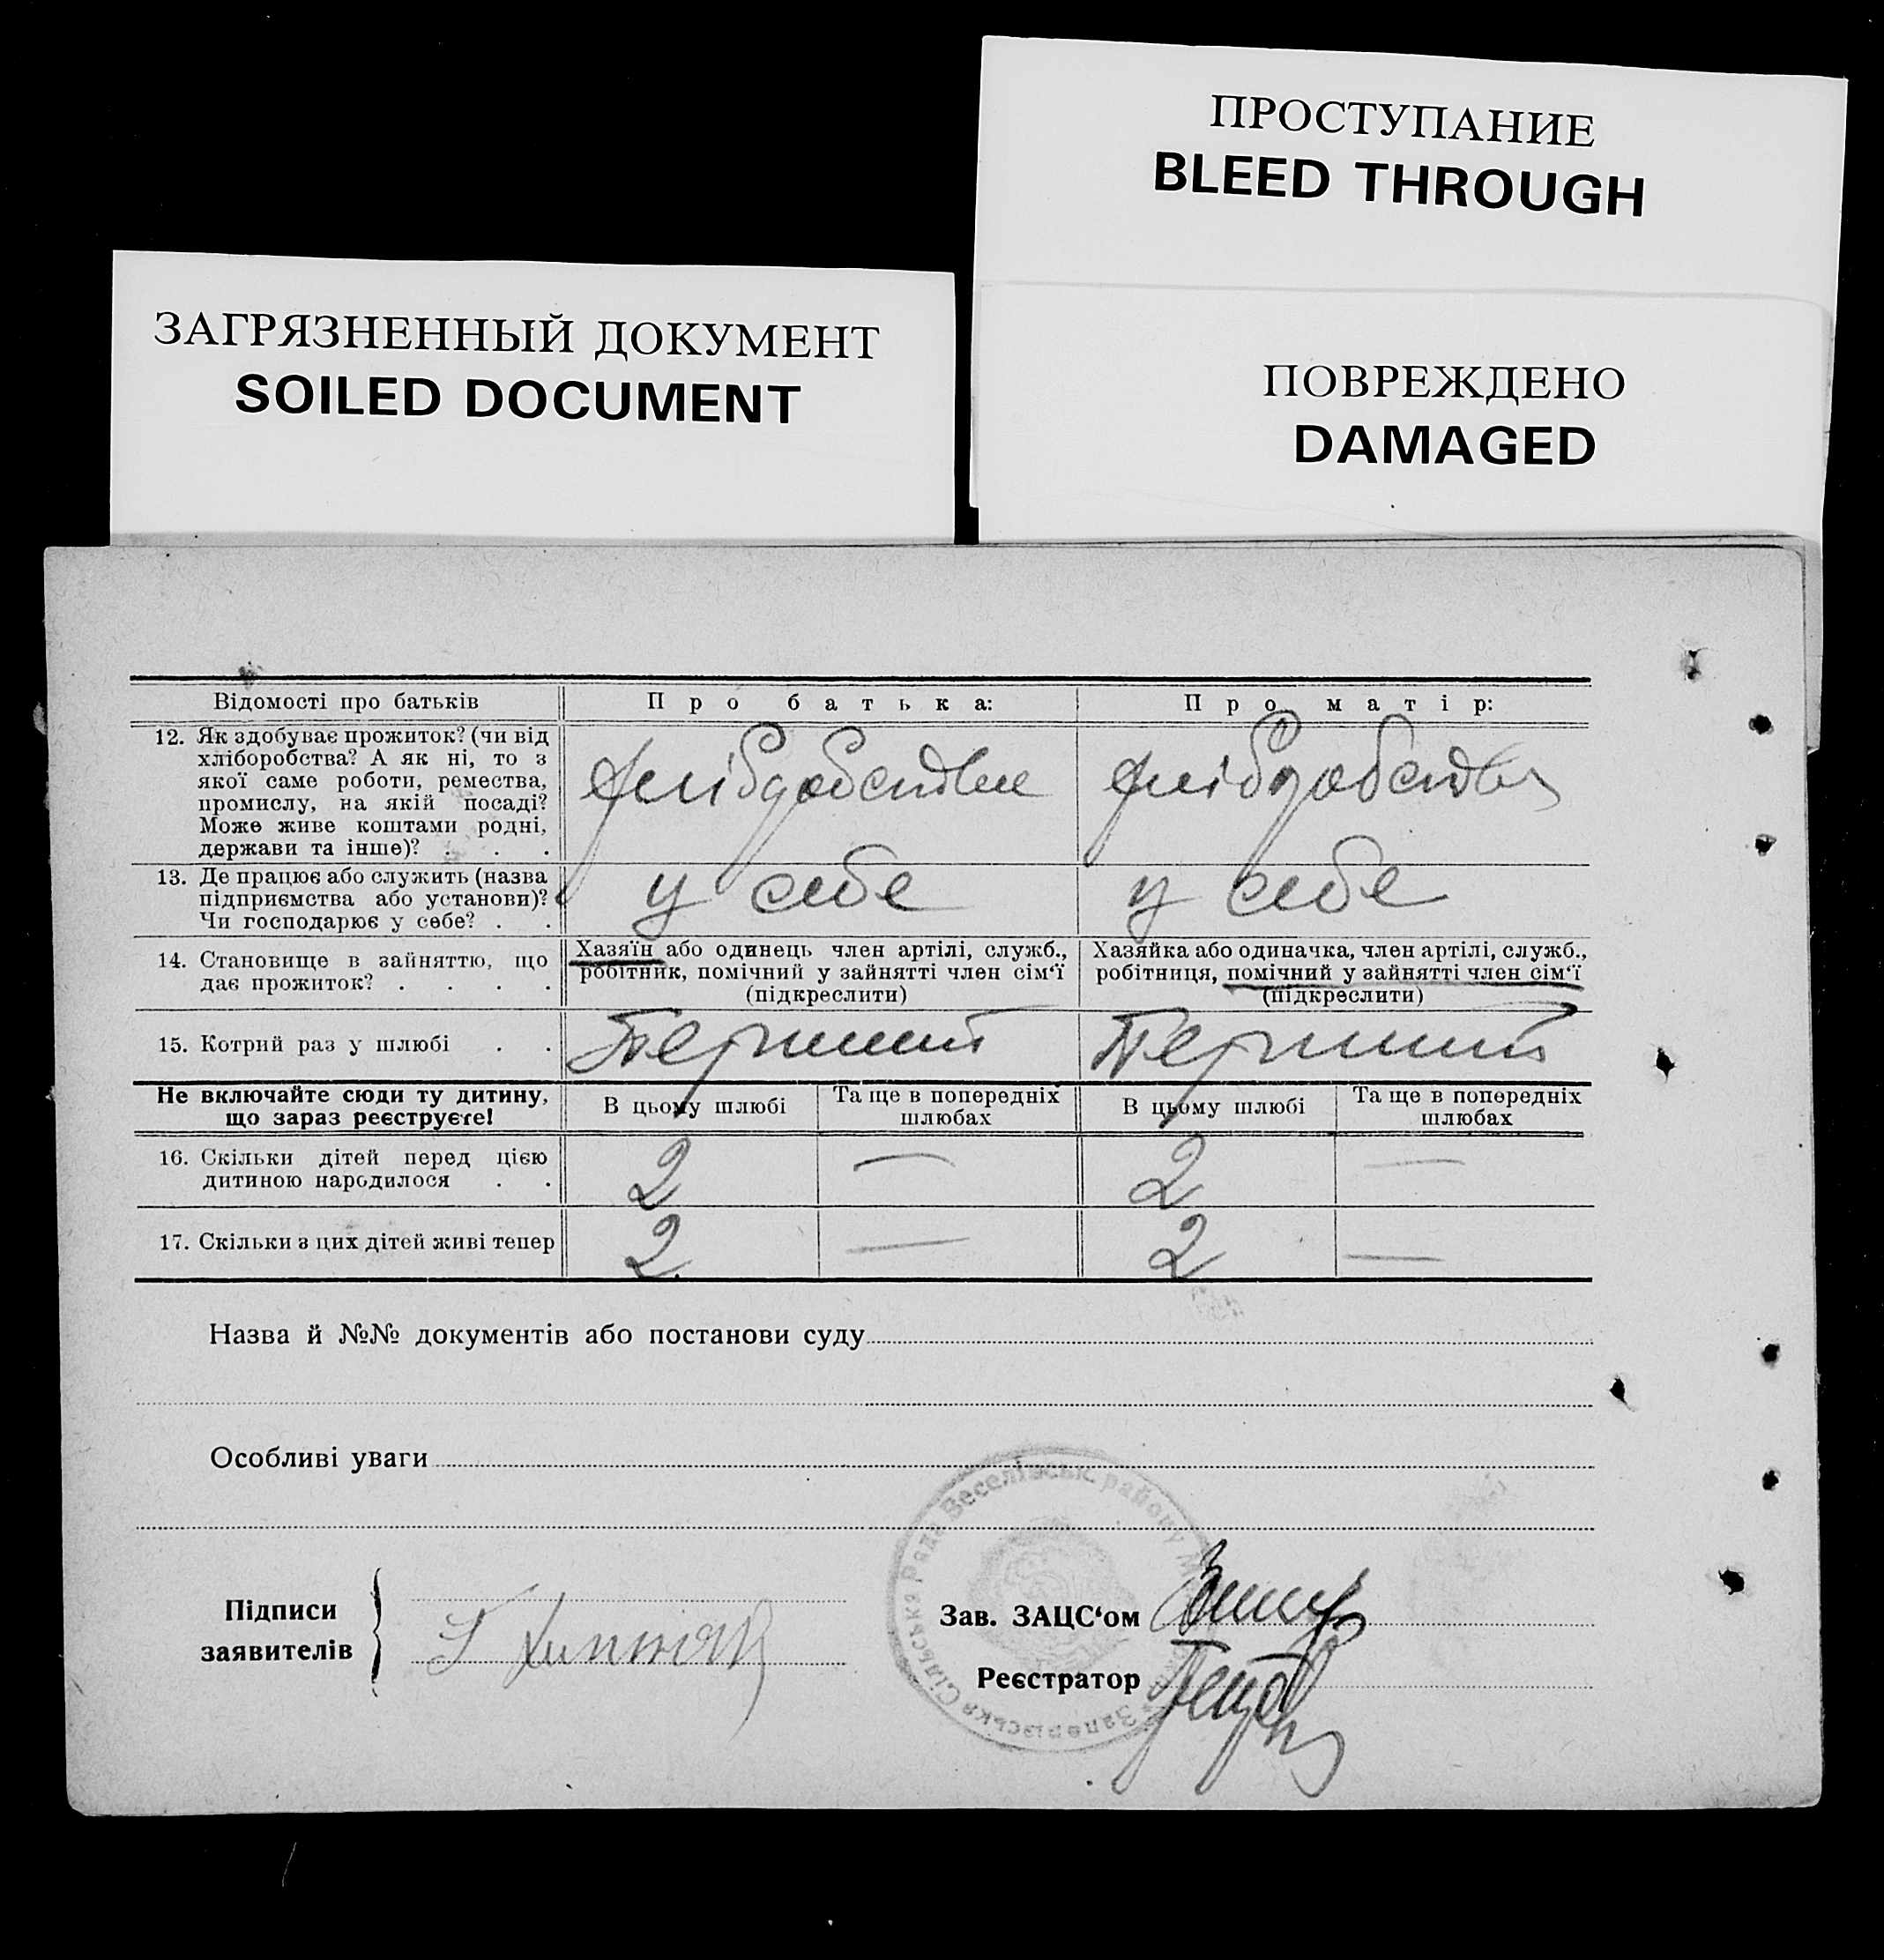 ПРОСТУПАНИЕ
BLEED THROUGH
ЗАГРЯЗНЕННЫЙ ДОКУМЕНТ
SOILED DOCUMENT
ПОВРЕЖДЕНО
DAMAGED
Відомості про батьків
Про батька:
Про матір:
12. Як здобуває прожиток? (чи від
хліборобства? А як ні, то з
якої саме роботи, ремества,
промислу, на якій посаді?
Може живе коштами родні,
держави та інше)? . . .
13. Де працює або служить (назва
підприємства або установи)?
Чи господарює у себе? . .
у себе
у себе
14. Становище в зайняттю, що
дає прожиток? . . . .
Хазяїн або одинець член артілі, служб.,
робітник, помічний у зайнятті член сім‘ї
(підкреслити)
Хазяйка або одиначка, член артілі, служб.,
робітниця, помічний у зайнятті член сім‘ї
(підкреслити)
15. Котрий раз у шлюбі . .
Перший
Перший
Не включайте сюди ту дитину,
що зараз реєструєте!
В цьому шлюбі
Та ще в попередніх
шлюбах
В цьому шлюбі
Та ще в попередніх
шлюбах
16. Скільки дітей перед цією
дитиною народилося . .
2
—
2
—
17. Скільки з цих дітей живі тепер
2
—
2
—
Назва й №№ документів або постанови суду
Особливі уваги
Підписи
заявителів
Зав. ЗАЦС‘ом
Реєстратор
Сільська Рада Веселівськ. району